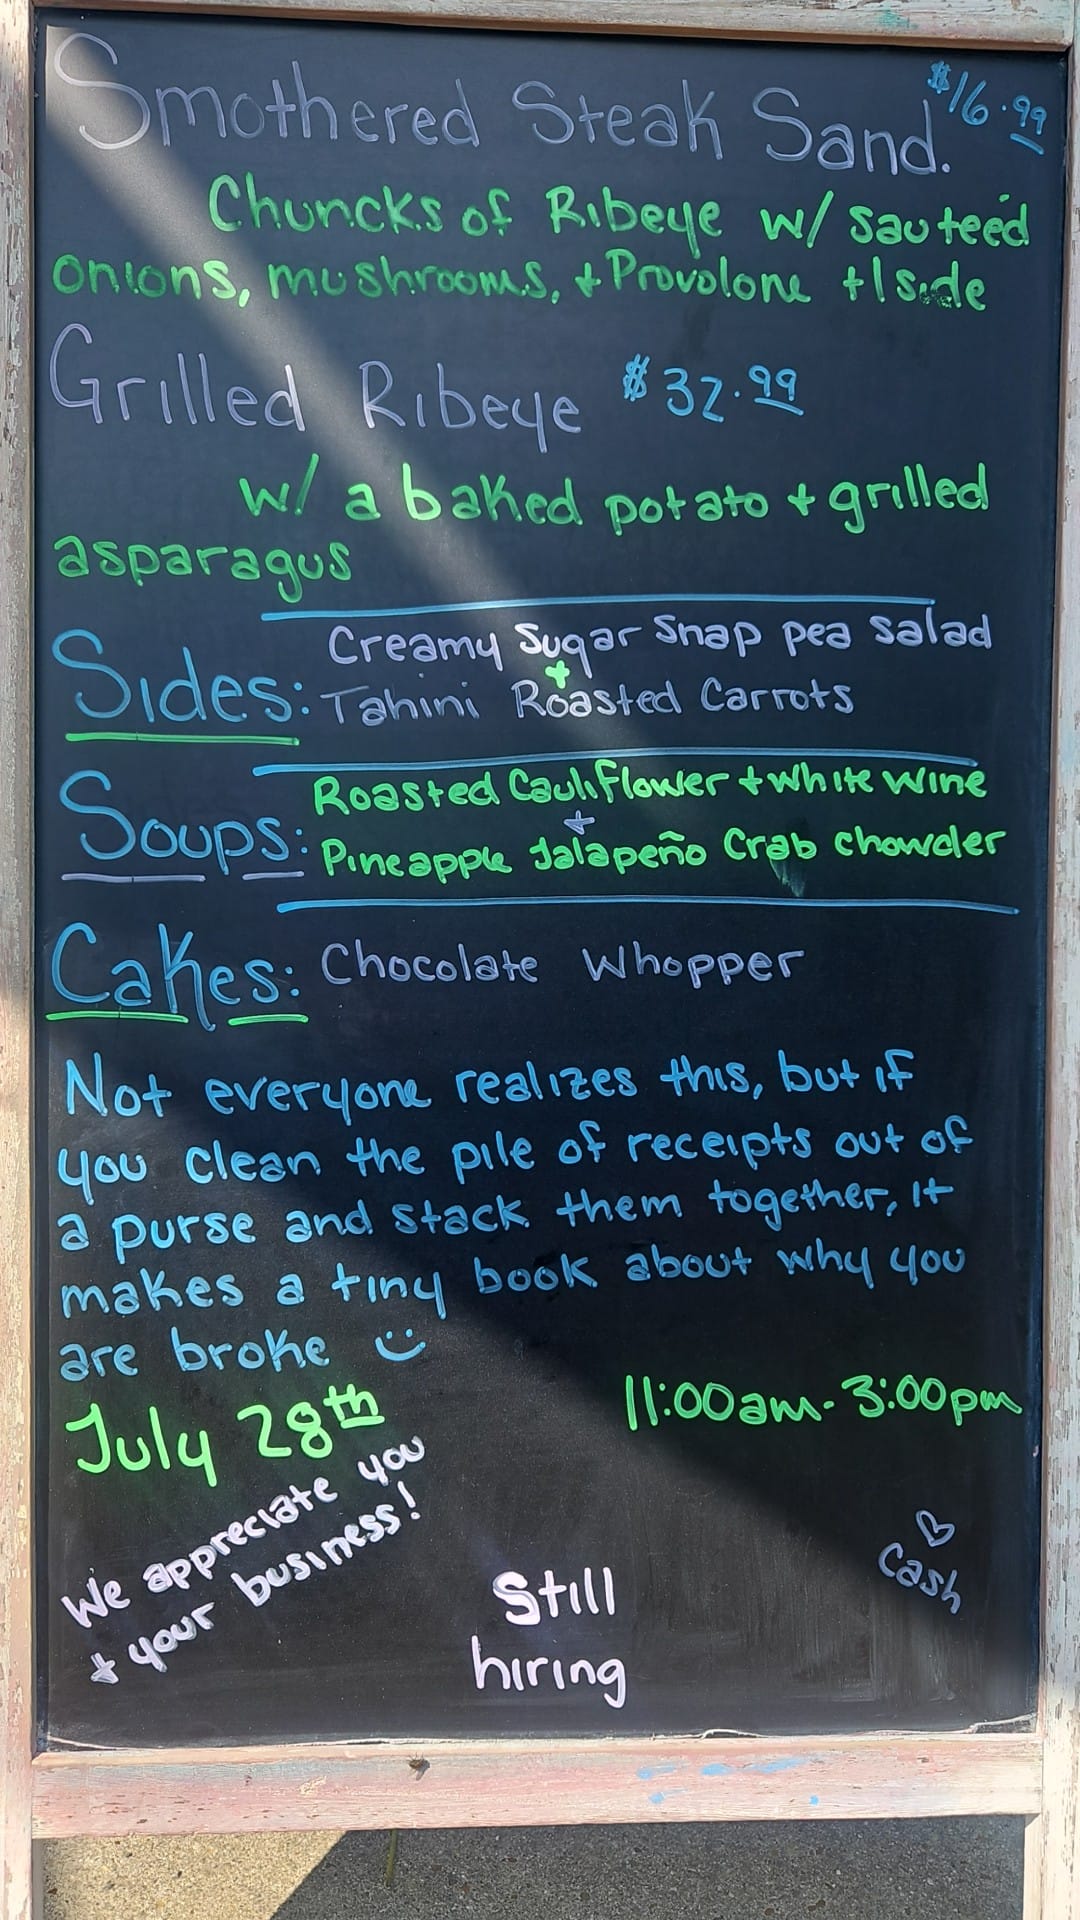 Smothered Steak Sand. $16.99
Chuncks of Ribeye w/ sauteed
onions, mushrooms, + Provolone + 1 side
Grilled Ribeye $32.99
w/ a baked potato + grilled
asparagus
Sides: Creamy Sugar Snap pea salad
+
Tahini Roasted Carrots
Soups: Roasted Cauliflower + White Wine
+
Pineapple Jalapeño Crab Chowder
Cakes: Chocolate Whopper
Not everyone realizes this, but if
you clean the pile of receipts out of
a purse and stack them together, it
makes a tiny book about why you
are broke
July 28th 11:00am - 3:00pm
We appreciate you
+ your business!
Still
hiring
♡
Cash